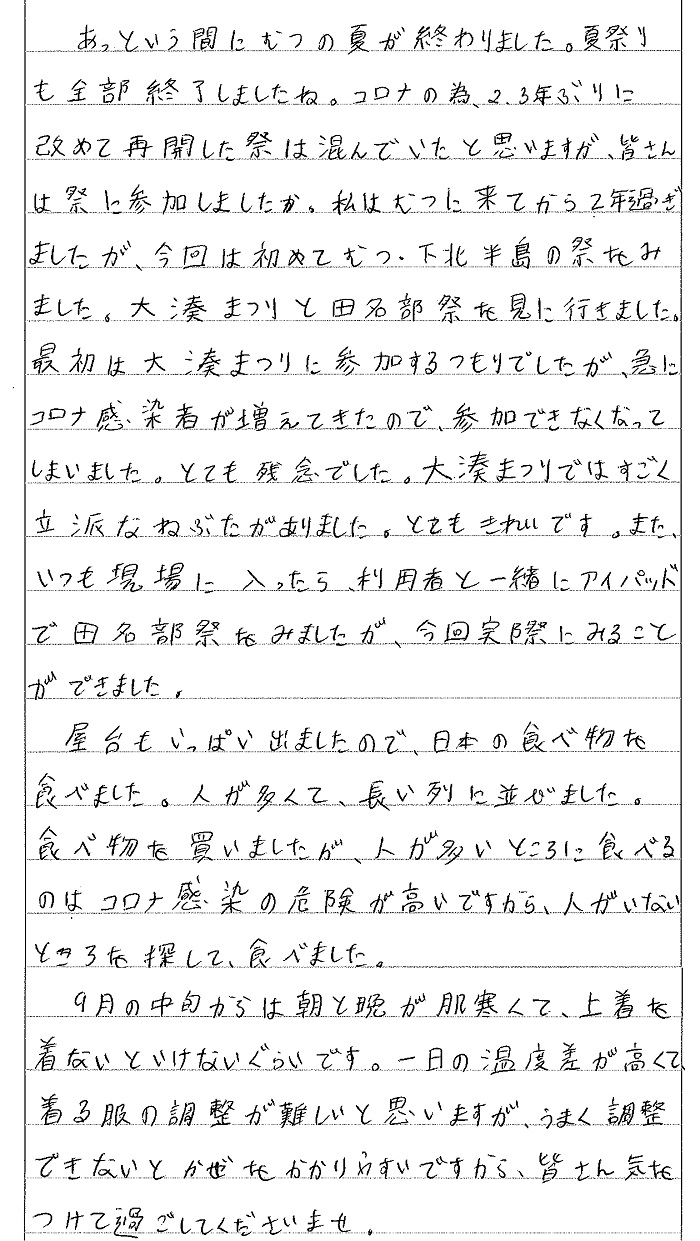 あっという間にむつの夏が終わりました。夏祭り
も全部終了しましたね。コロナの為、2.3年ぶりに
改めて再開した祭は混んでいたと思いますが、皆さん
は祭に参加しましたか。私はむつに来てから2年過ぎ
ましたが、今回は初めてむつ・下北半島の祭をみ
ました。大湊まつりと田名部祭を見に行きました。
最初は大湊まつりに参加するつもりでしたが、急に
コロナ感染者が増えてきたので、参加できなくなって
しまいました。とても残念でした。大湊まつりではすごく
立派なねぶたがありました。とてもきれいです。また、
いつも現場に入ったら、利用者と一緒にアイパッド
で田名部祭をみましたが、今回実際にみること
ができました。
屋台もいっぱい出ましたので、日本の食べ物を
食べました。人が多くて、長い列に並びました。
食べ物を買いましたが、人が多いところに食べる
のはコロナ感染の危険が高いですから、人がいない
ところを探して、食べました。
9月の中旬からは朝と晩が肌寒くて、上着を
着ないといけないぐらいです。一日の温度差が高くて、
着る服の調整が難しいと思いますが、うまく調整
できないとかぜをかかりやすいですから、皆さん気を
つけて過ごしてくださいませ。